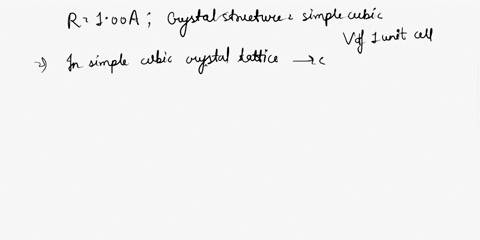 R = 1.00A ; Crystal structure = simple cubic
V of 1 unit cell
=) In simple cubic crystal lattice → c